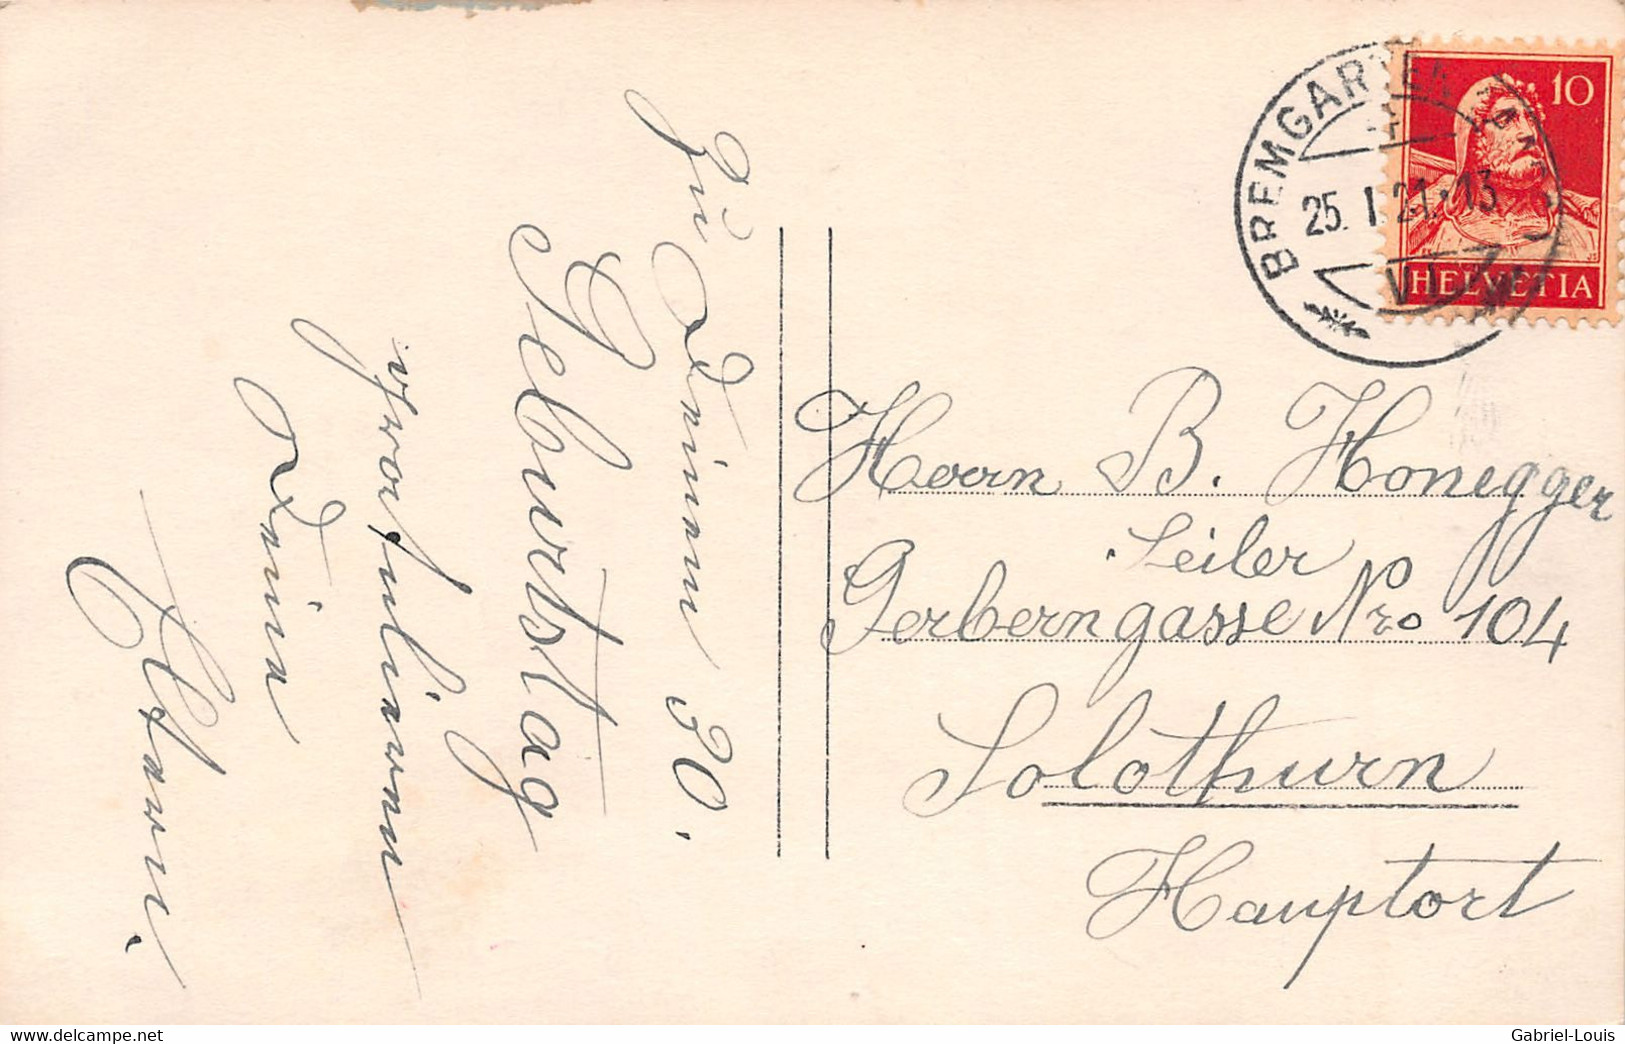 Zu Deinem 30.
Geburtstag
gratulieren
Deine
Eltern.
BREMGARTEN
25. I. 21. 13
VI
10
HELVETIA
Herrn B. Honegger
Seiler
Gerberngasse Nro 104
Solothurn
Hauptort
www.delcampe.net
Gabriel-Louis